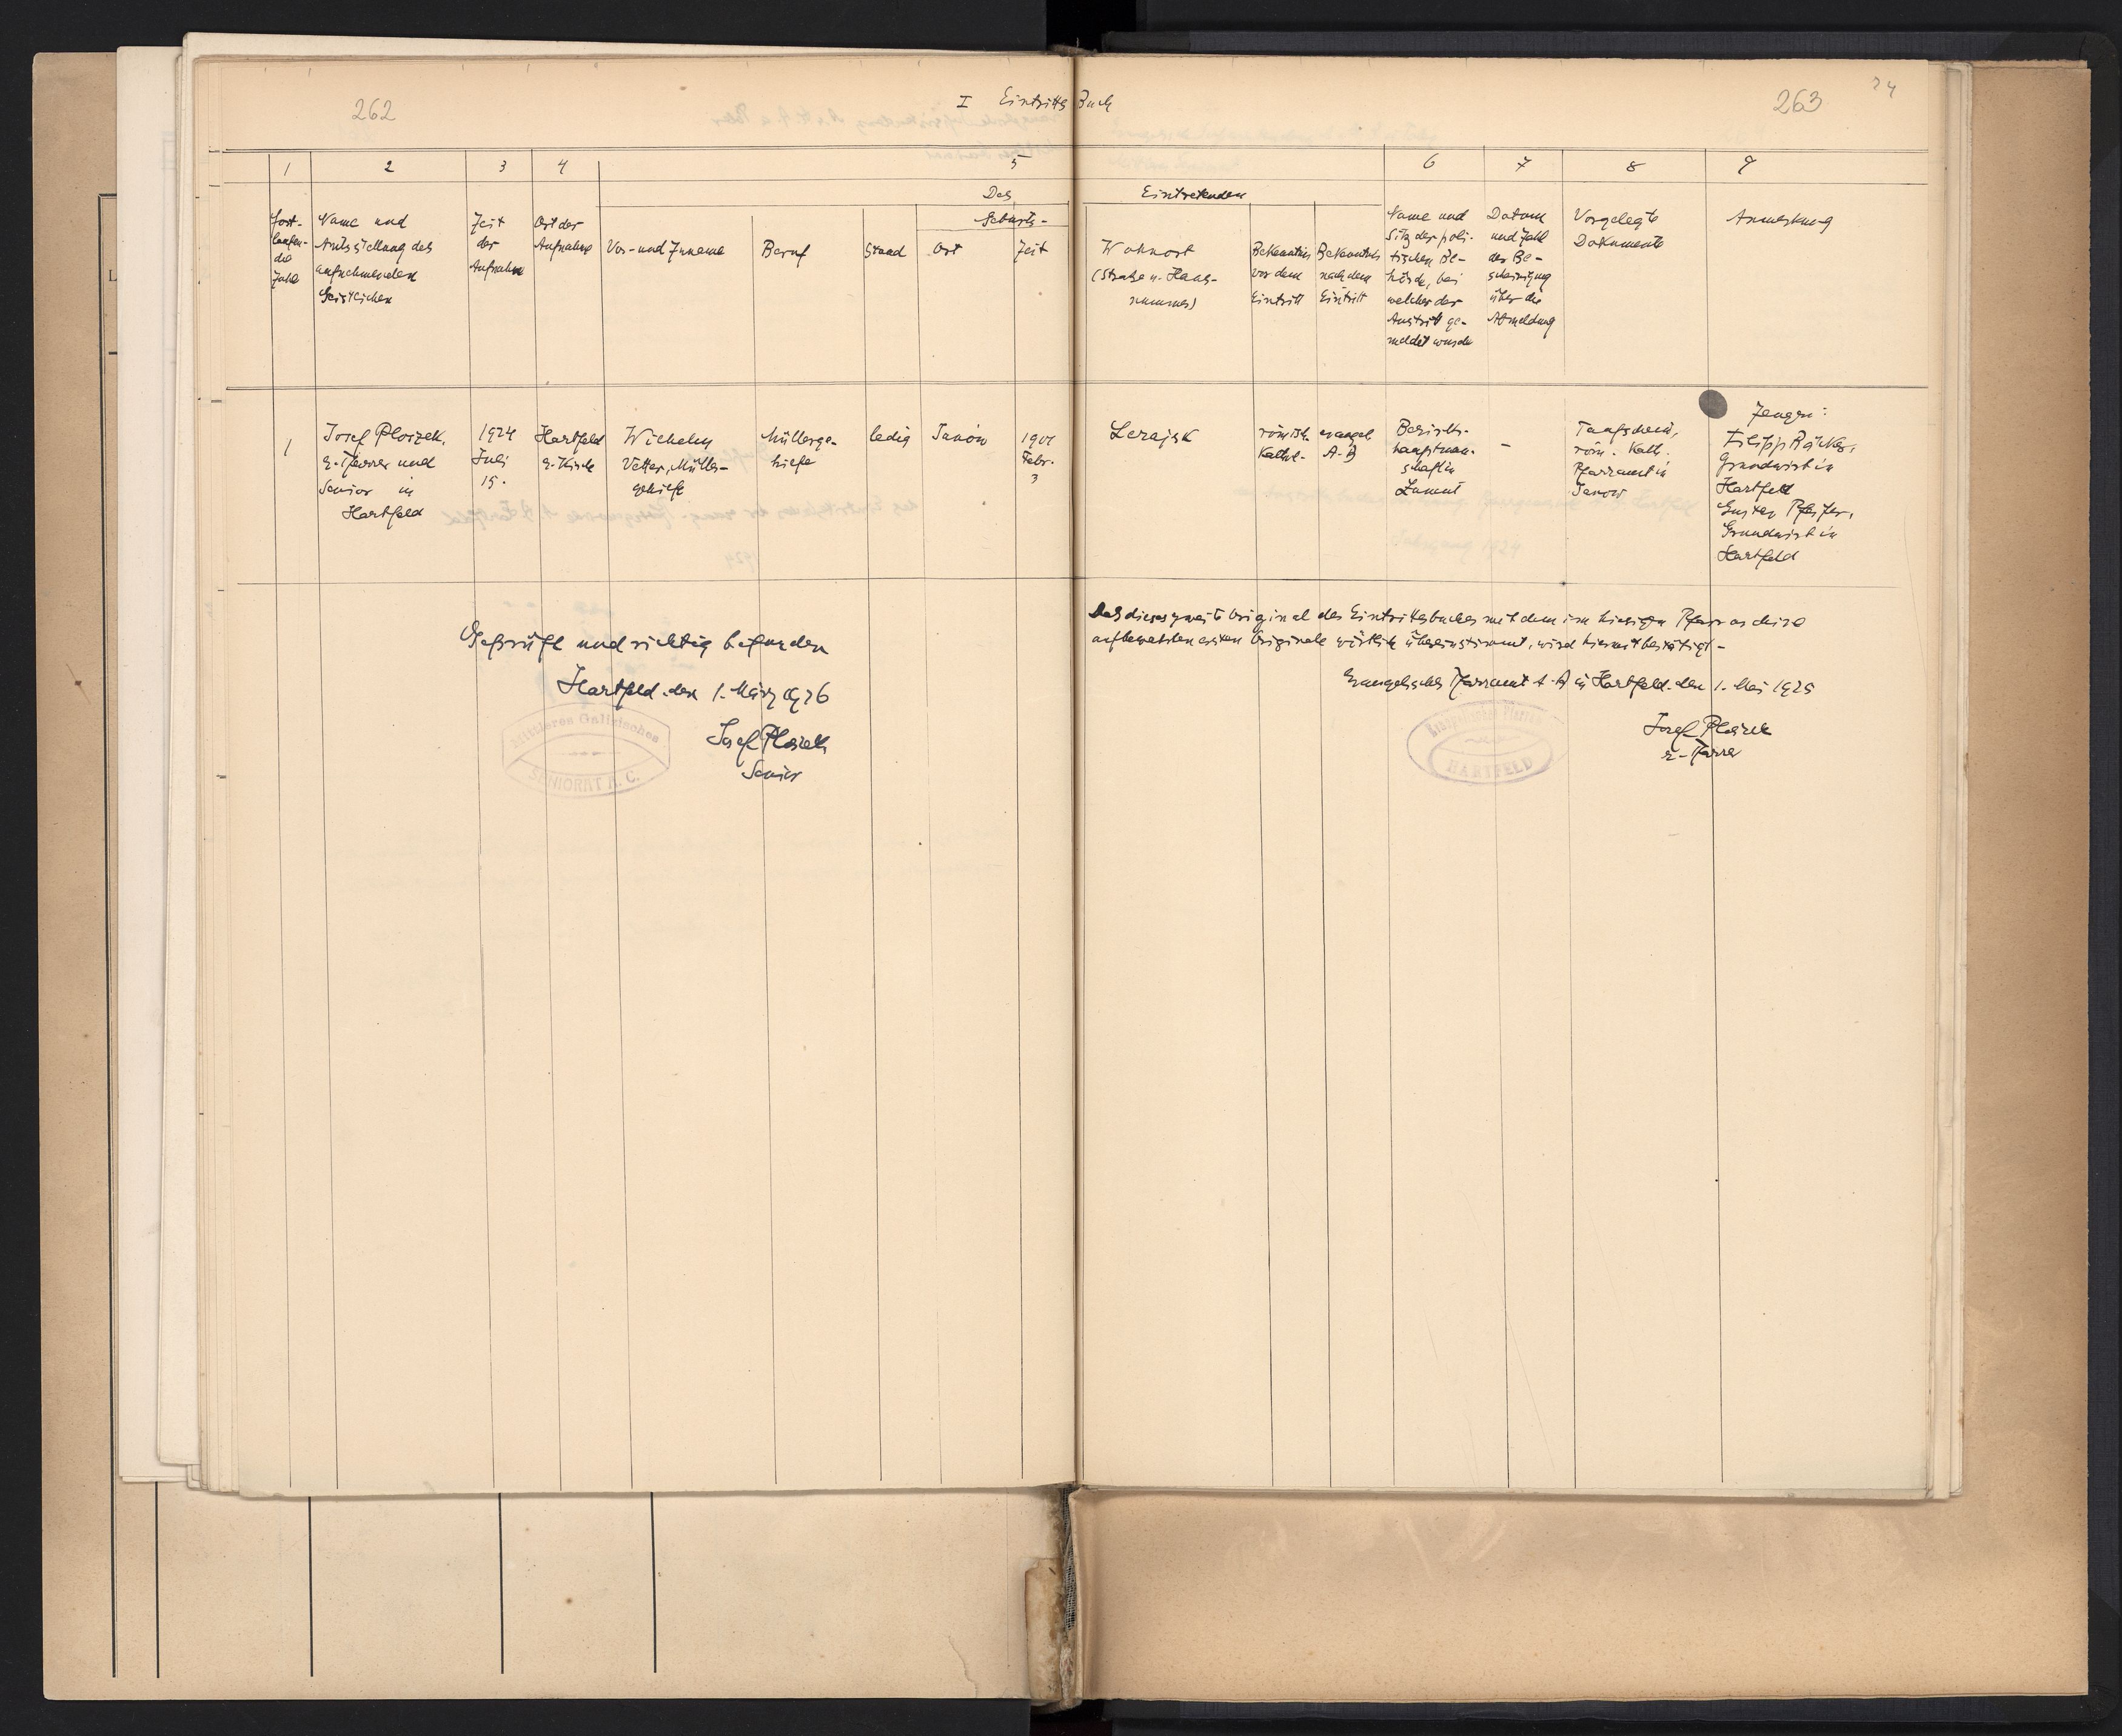 262
I Eintritts Buch
263
24
1 2 3 4 5 6 7 8 9
Des Eintretenden
Fort-
laufen-
de
Zahl
Name und
Amtsstellung des
aufnehmenden
Geistlichen
Zeit
der
Aufnahme
Ort der
Aufnahme
Vor- und Zuname
Beruf
Stand
Geburts-
Ort
Zeit
Wohnort
(Straße u. Haus-
nummer)
Bekenntnis
vor dem
Eintritt
Bekenntnis
nach dem
Eintritt
Name und
Sitz der poli-
tischen Be-
hörde, bei
welcher der
Austritt ge-
meldet wurde
Datum
und Zahl
der Be-
scheinigung
über die
Abmeldung
Vorgelegte
Dokumente
Anmerkung
1
Josef Ploszek,
e. Pfarrer und
Senior in
Hartfeld
1924
Juli
15.
Hartfeld
e. Kirche
Wilhelm
Vetter, Müller-
gehilfe
Müllerge-
hilfe
ledig
Janów
1901
Febr.
3
Lezajsk
römisch-
kathol-
evangel
A. B
Bezirks-
hauptman-
schaft in
Łancut
-
Taufschein,
röm. Kath.
Pfarramt in
Janow
Zeugen:
Filipp Bäcker,
Grundwirt in
Hartfeld
Gustav Pfeifer,
Grundwirt in
Hartfeld
Geprüft und richtig befunden
Hartfeld den 1. März 1926
Josef Ploszek
Senior
Mittleres Galizisches
SENIORAT A. C.
Daß dieses zweite Original des Eintrittsbuches mit dem im hiesigen Pfarrarchive
aufbewahrten ersten Originale wörtlich übereinstimmt, wird hiermit bestätigt -
Evangelisches Pfarramt A. B in Hartfeld den 1. Mai 1925
Josef Ploszek
e. Pfarrer
HARTFELD